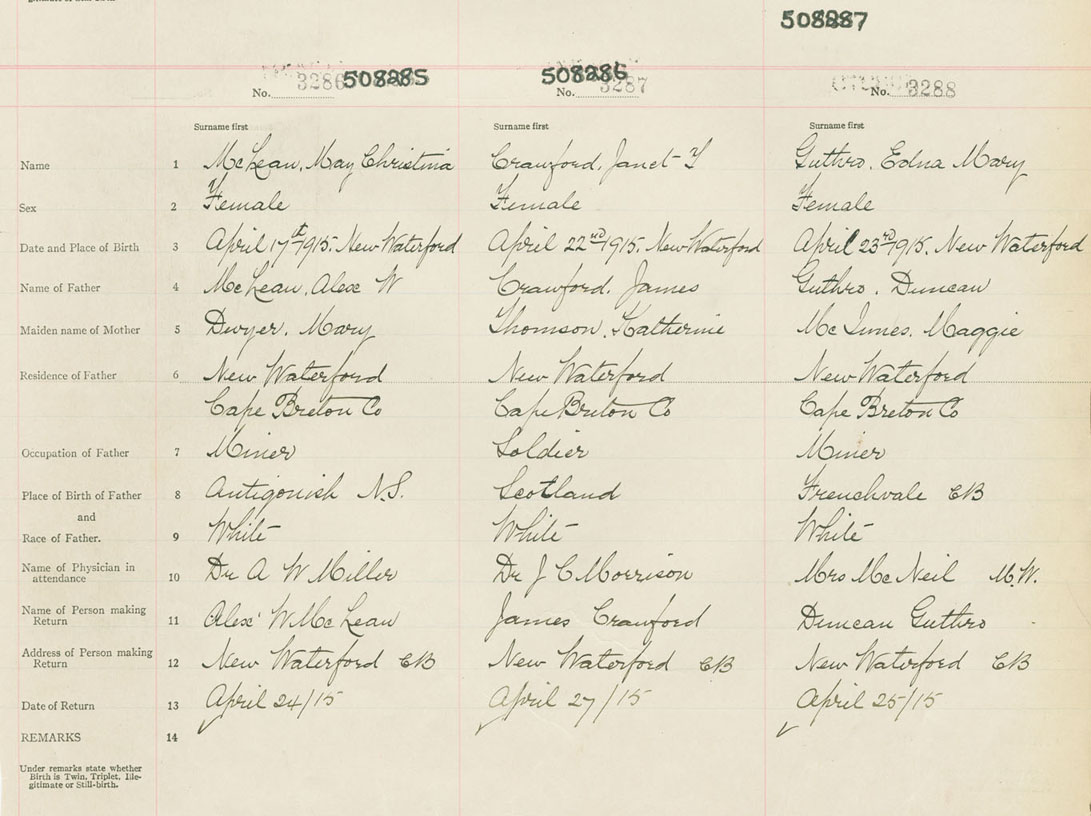 508287
508285 508286
No. 3286 No. 3287 No. 3288
Surname first Surname first Surname first
Name 1 McLean, May Christina Crawford, Janet Y Guthro, Edna Mary
Sex 2 Female Female Female
Date and Place of Birth 3 April 17th 1915. New Waterford April 22nd 1915. New Waterford April 23rd 1915. New Waterford
Name of Father 4 McLean, Alex W Crawford, James Guthro, Duncan
Maiden name of Mother 5 Dwyer, Mary Thomson, Katherine McInnes, Maggie
Residence of Father 6 New Waterford New Waterford New Waterford
Cape Breton Co Cape Breton Co Cape Breton Co
Occupation of Father 7 Miner Soldier Miner
Place of Birth of Father 8 Antigonish N.S. Scotland Frenchvale CB
and
Race of Father. 9 White White White
Name of Physician in
attendance 10 Dr A W Miller Dr J C Morrison Mrs McNeil M.W.
Name of Person making
Return 11 Alex W McLean James Crawford Duncan Guthro
Address of Person making
Return 12 New Waterford CB New Waterford CB New Waterford CB
Date of Return 13 April 24/15 April 27/15 April 25/15
REMARKS 14
Under remarks state whether
Birth is Twin, Triplet, Ille-
gitimate or Still-birth.